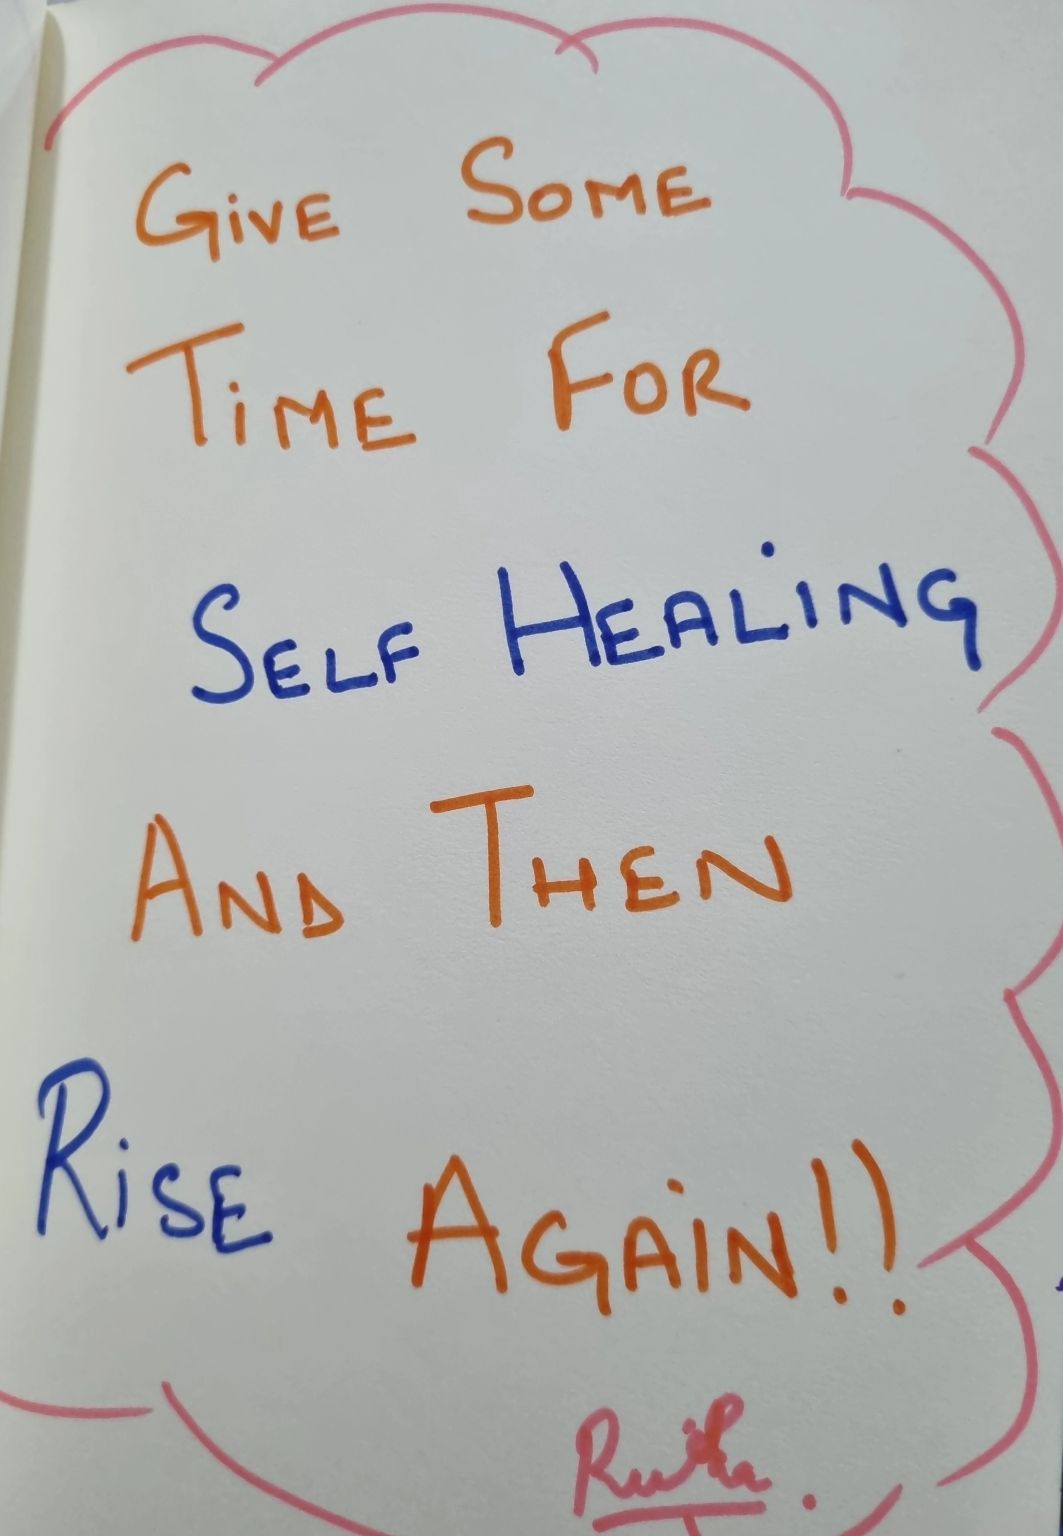 GiVE SOME
TiME FOR
SELF HEALiNG
AND THEN
RiSE AGAiN!!